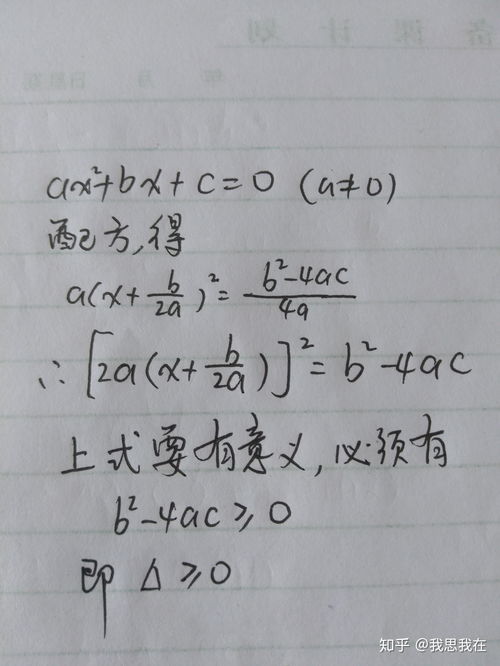 ax²+bx+c=0 (a≠0)
配方,得
a(x+b/2a)²=b²-4ac/4a
∴[2a(x+b/2a)]²=b²-4ac
上式要有意义,必须有
b²-4ac≥0
即 Δ≥0
知乎 @我思我在